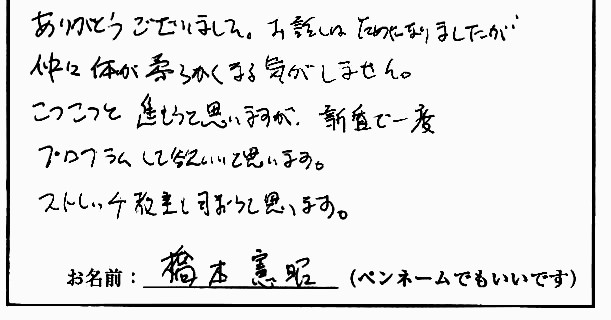 ありがとうございました。お話しはためになりましたが
仲に体が柔らかくなる気がしません。
こつこつと進もうと思いますが、新宿で一度
プログラムして欲しいと思います。
ストレッチ教室も
と思います。
お名前：橋本憲昭（ペンネームでもいいです）